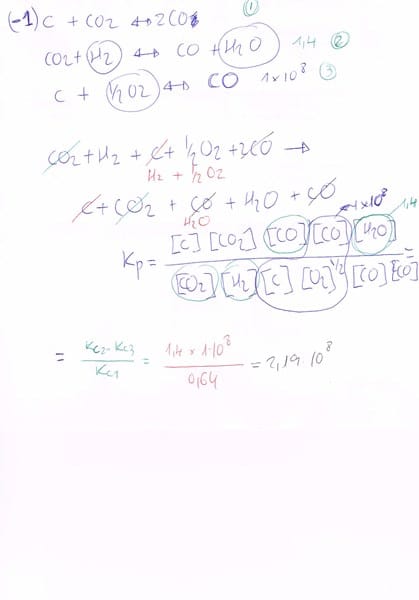 (-1) C + CO2 ↔ 2CO ①
CO2 + H2 ↔ CO + H2O 1,4 ②
C + 1/2 O2 ↔ CO 1x10^8 ③
CO2 + H2 + C + 1/2 O2 + 2CO →
H2 + 1/2 O2
C + CO2 + CO + H2O + CO
H2O
1x10^8
1,4
Kp = [C] [CO2] [CO] [CO] [H2O] =
[CO2] [H2] [C] [O2]^1/2 [CO] [CO]
= Kc2 - Kc3 = 1,4 x 1·10^8 = 2,19 10^8
Kc1 0,64